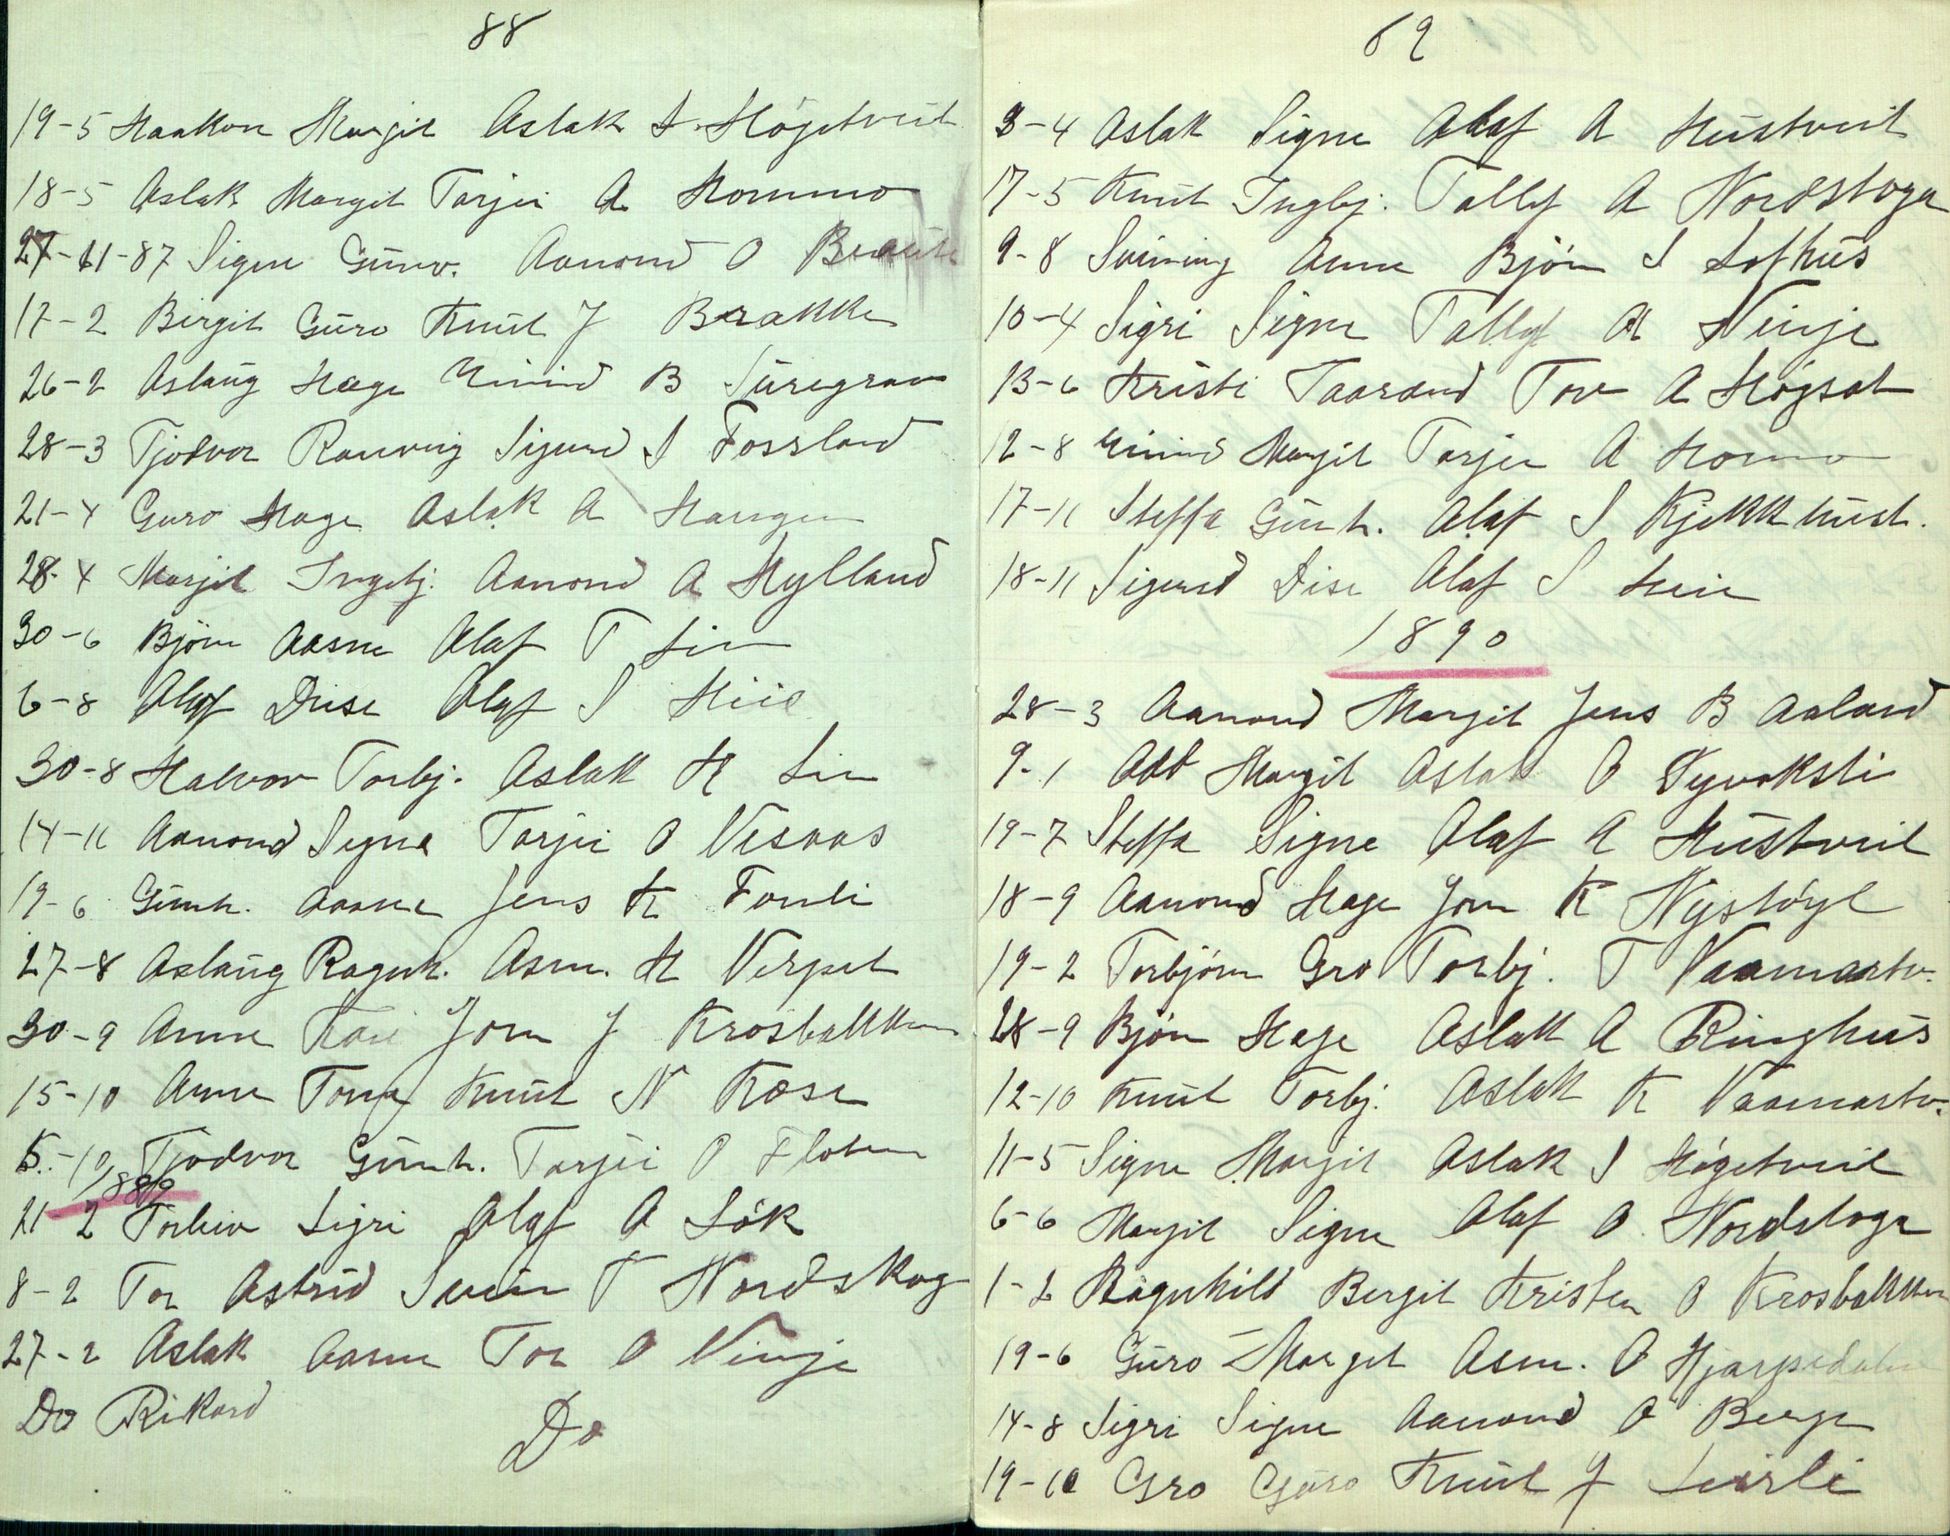 88
19-5 Haakon Margit Aslak S. Högetveit
18-5 Aslak Margit Tarjei A Hommo
27-11-87 Signe Gunv. Aamond O
17-2 Birgit Guro Knut J Brakke
26-2 Aslaug Hæge Eivind B Suregrav
28-3 Tjodvor Ranveig Sigurd S Fossland
21-4 Guro Hæge Aslak A Haugen
28-4 Margit Ingebj. Aamond A Hylland
30-6 Björn Aasne Olaf T Lien
6-8 Olaf Dise Olaf S
30-8 Halvor Torbj. Aslak H Lien
14-11 Aamond Signe Tarjei O Vesaas
19-6 Gunh. Aasne Jens K Tomli
27-8 Aslaug Ragnh. Asm. H Verpet
30-9 Anne Kari Jon J Krosbakken
15-10 Anne Tone Knut N Kose
5-10 Tjodvor Gunh. Tarjei O Flaten
1889
21-2 Torleiv Sigri Olaf A Lök
8-2 Tor Astrid Svein T Nordskog
27-2 Aslak Aasne Tor O Vinje
Do Rikard Do
69
3-4 Aslak Signe Olaf A Hustveit
17-5 Knut Ingbj. Tallef A Nordstoga
9-8 Sveinung Anne Björn S Lofthus
10-4 Sigri Signe Tallef A Vinje
13-6 Kristi Taarand Tov A Högset
12-8 Eivind Margit Tarjei A Hommo
17-11 Steffa Gunh. Olaf S Kjekkhust.
18-11 Sigurd Dise Olaf S
1890
28-3 Aamond Margit Jens B Aaland
9-1 Odd Margit Aslak O
19-7 Steffa Signe Olaf A Hustveit
18-9 Aamond Hæge Jon K Nystöyl
19-2 Torbjörn Gro Torbj. T Vaamartv.
28-9 Björn Hæge Aslak A Ringhus
12-10 Knut Torbj. Aslak K Vaamartv.
11-5 Signe Margit Aslak S Högetveit
6-6 Margit Signe Olaf O Nordstoga
1-2 Ragnhild Bergit Kristen O Krosbakken
19-6 Guro Marget Asm. O Hjarpsdalen
14-8 Sigri Signe Aamond O Berge
19-10 Gro Guro Knut J Leirli